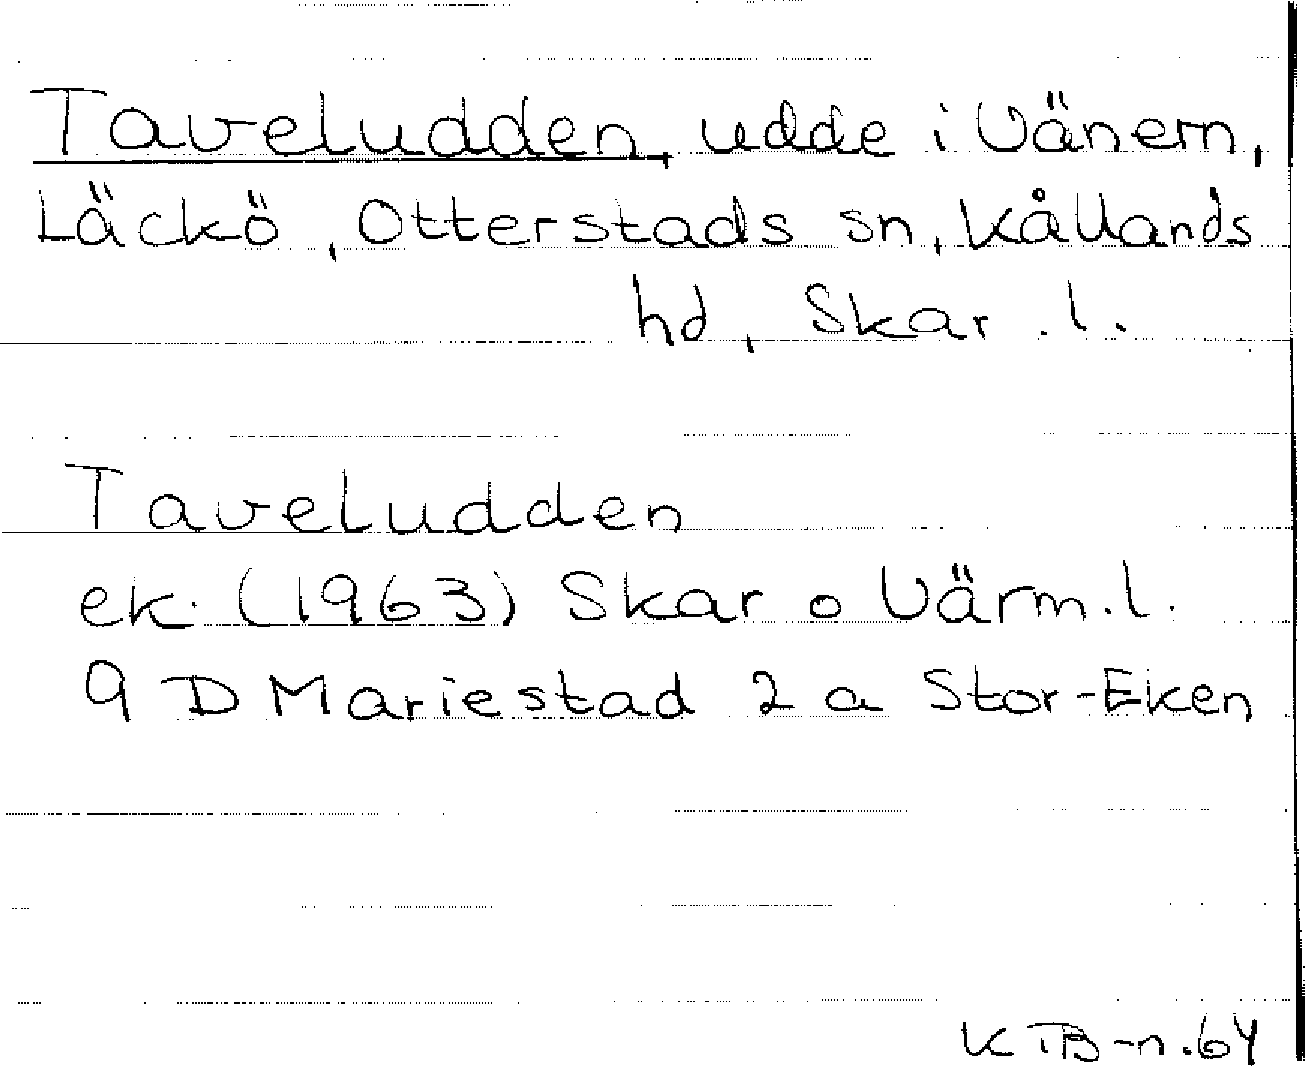 Taveludden, udde i Vänern,
Läckö, Otterstads sn, Kållands
hd, Skar. l.
Taveludden
ek. (1963) Skar o Värm. l.
9 D Mariestad 2 a Stor-Eken
K TB-n.64